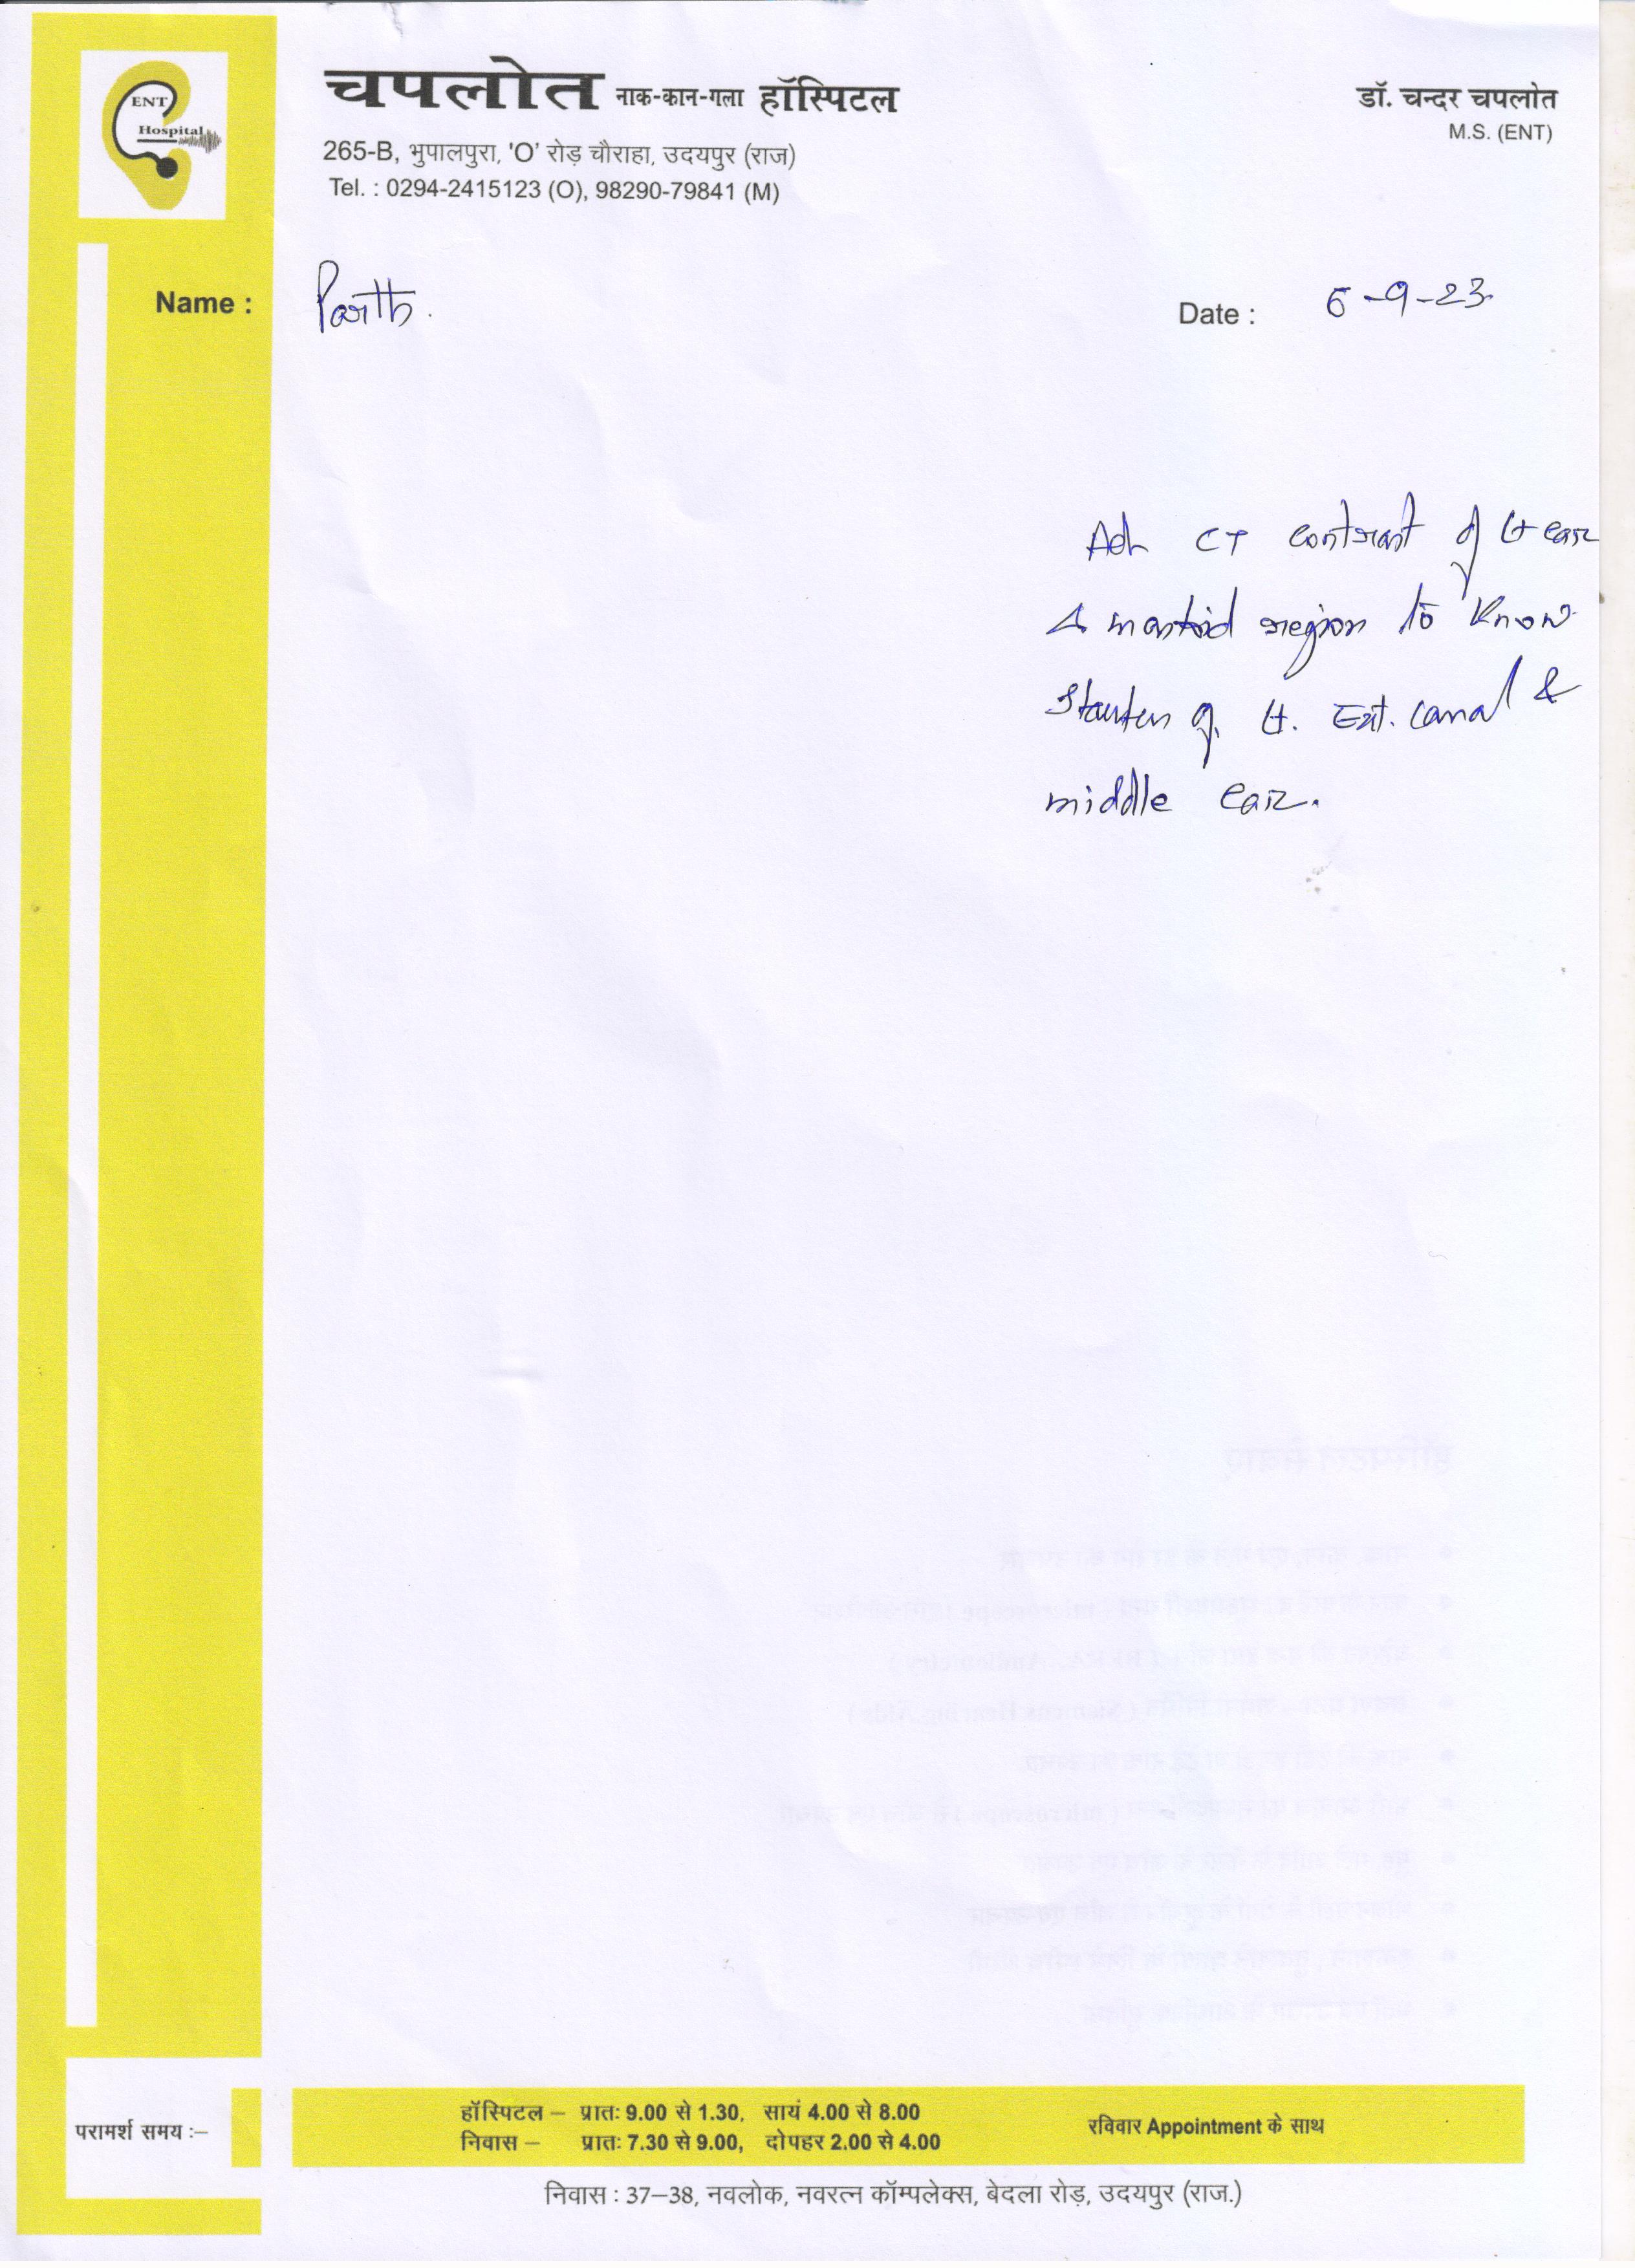 ENT
Hospital
चपलोत नाक-कान-गला हॉस्पिटल
265-B, भुपालपुरा, 'O' रोड़ चौराहा, उदयपुर (राज)
Tel. : 0294-2415123 (O), 98290-79841 (M)
डॉ. चन्दर चपलोत
M.S. (ENT)
Name : Parth.
Date : 6-9-23
Adv CT contrast of Lt ear
& mastoid region to know
of Lt. Ext. canal &
middle ear.
परामर्श समय :–
हॉस्पिटल – प्रातः 9.00 से 1.30, सायं 4.00 से 8.00
निवास – प्रातः 7.30 से 9.00, दोपहर 2.00 से 4.00
रविवार Appointment के साथ
निवास : 37–38, नवलोक, नवरत्न कॉम्पलेक्स, बेदला रोड़, उदयपुर (राज.)